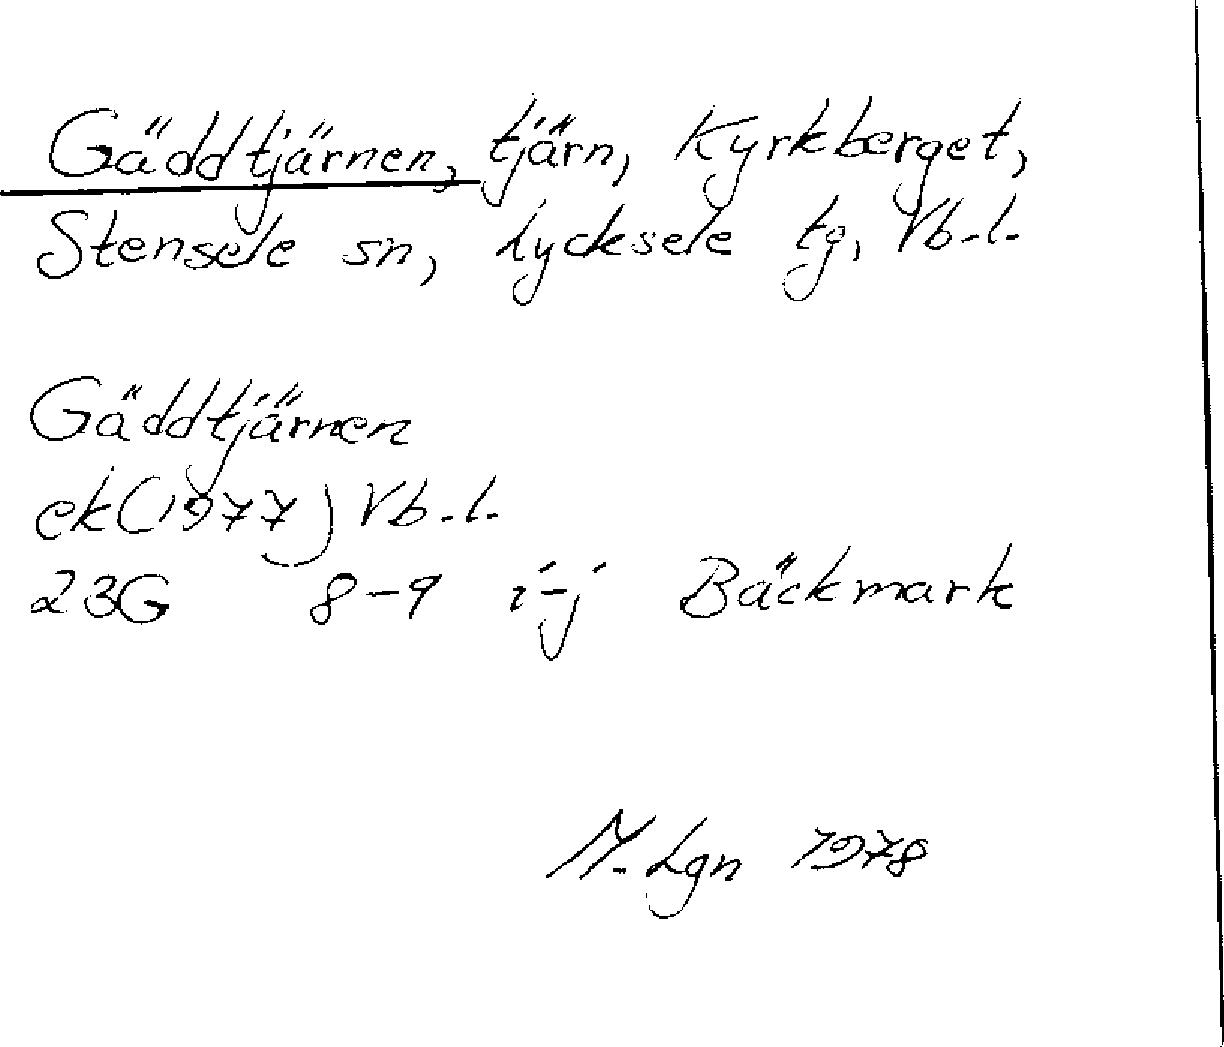 Gäddtjärnen, tjärn, Kyrkberget,
Stensele sn, Lycksele tg, Vb.l.
Gäddtjärnen
ek(1977) Vb.l.
23G 8-9 i-j Bäckmark
M. Lgn 1978